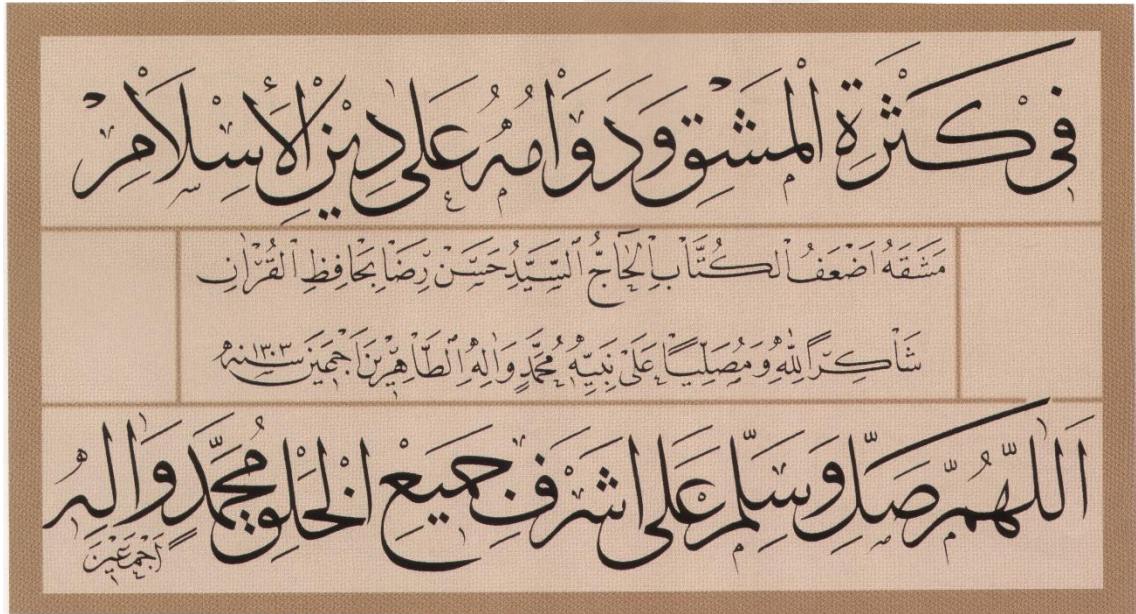 فِي كَثْرَةِ الْمَشْقِ وَدَوَامُهُ عَلَى دِيْنِ الْأِسْلَامِ
مَشَقَهُ اَضْعَفُ الْكُتَّابِ اَلْحَاجُّ السَّيِّدُ حَسَنْ رِضَا بِحَافِظِ الْقُرْاٰنِ
شَاكِرًا لِلّٰهِ وَمُصَلِّيًا عَلٰى نَبِيِّهِ مُحَمَّدٍ وَاٰلِهِ الطَّاهِرِيْنَ اَجْمَعِيْنَ سنه ١٣٠٣
اَللّٰهُمَّ صَلِّ وَسَلِّمْ عَلٰى اَشْرَفِ جَمِيْعِ الْخَلْقِ مُحَمَّدٍ وَاٰلِهِ
اَجْمَعِيْنَ